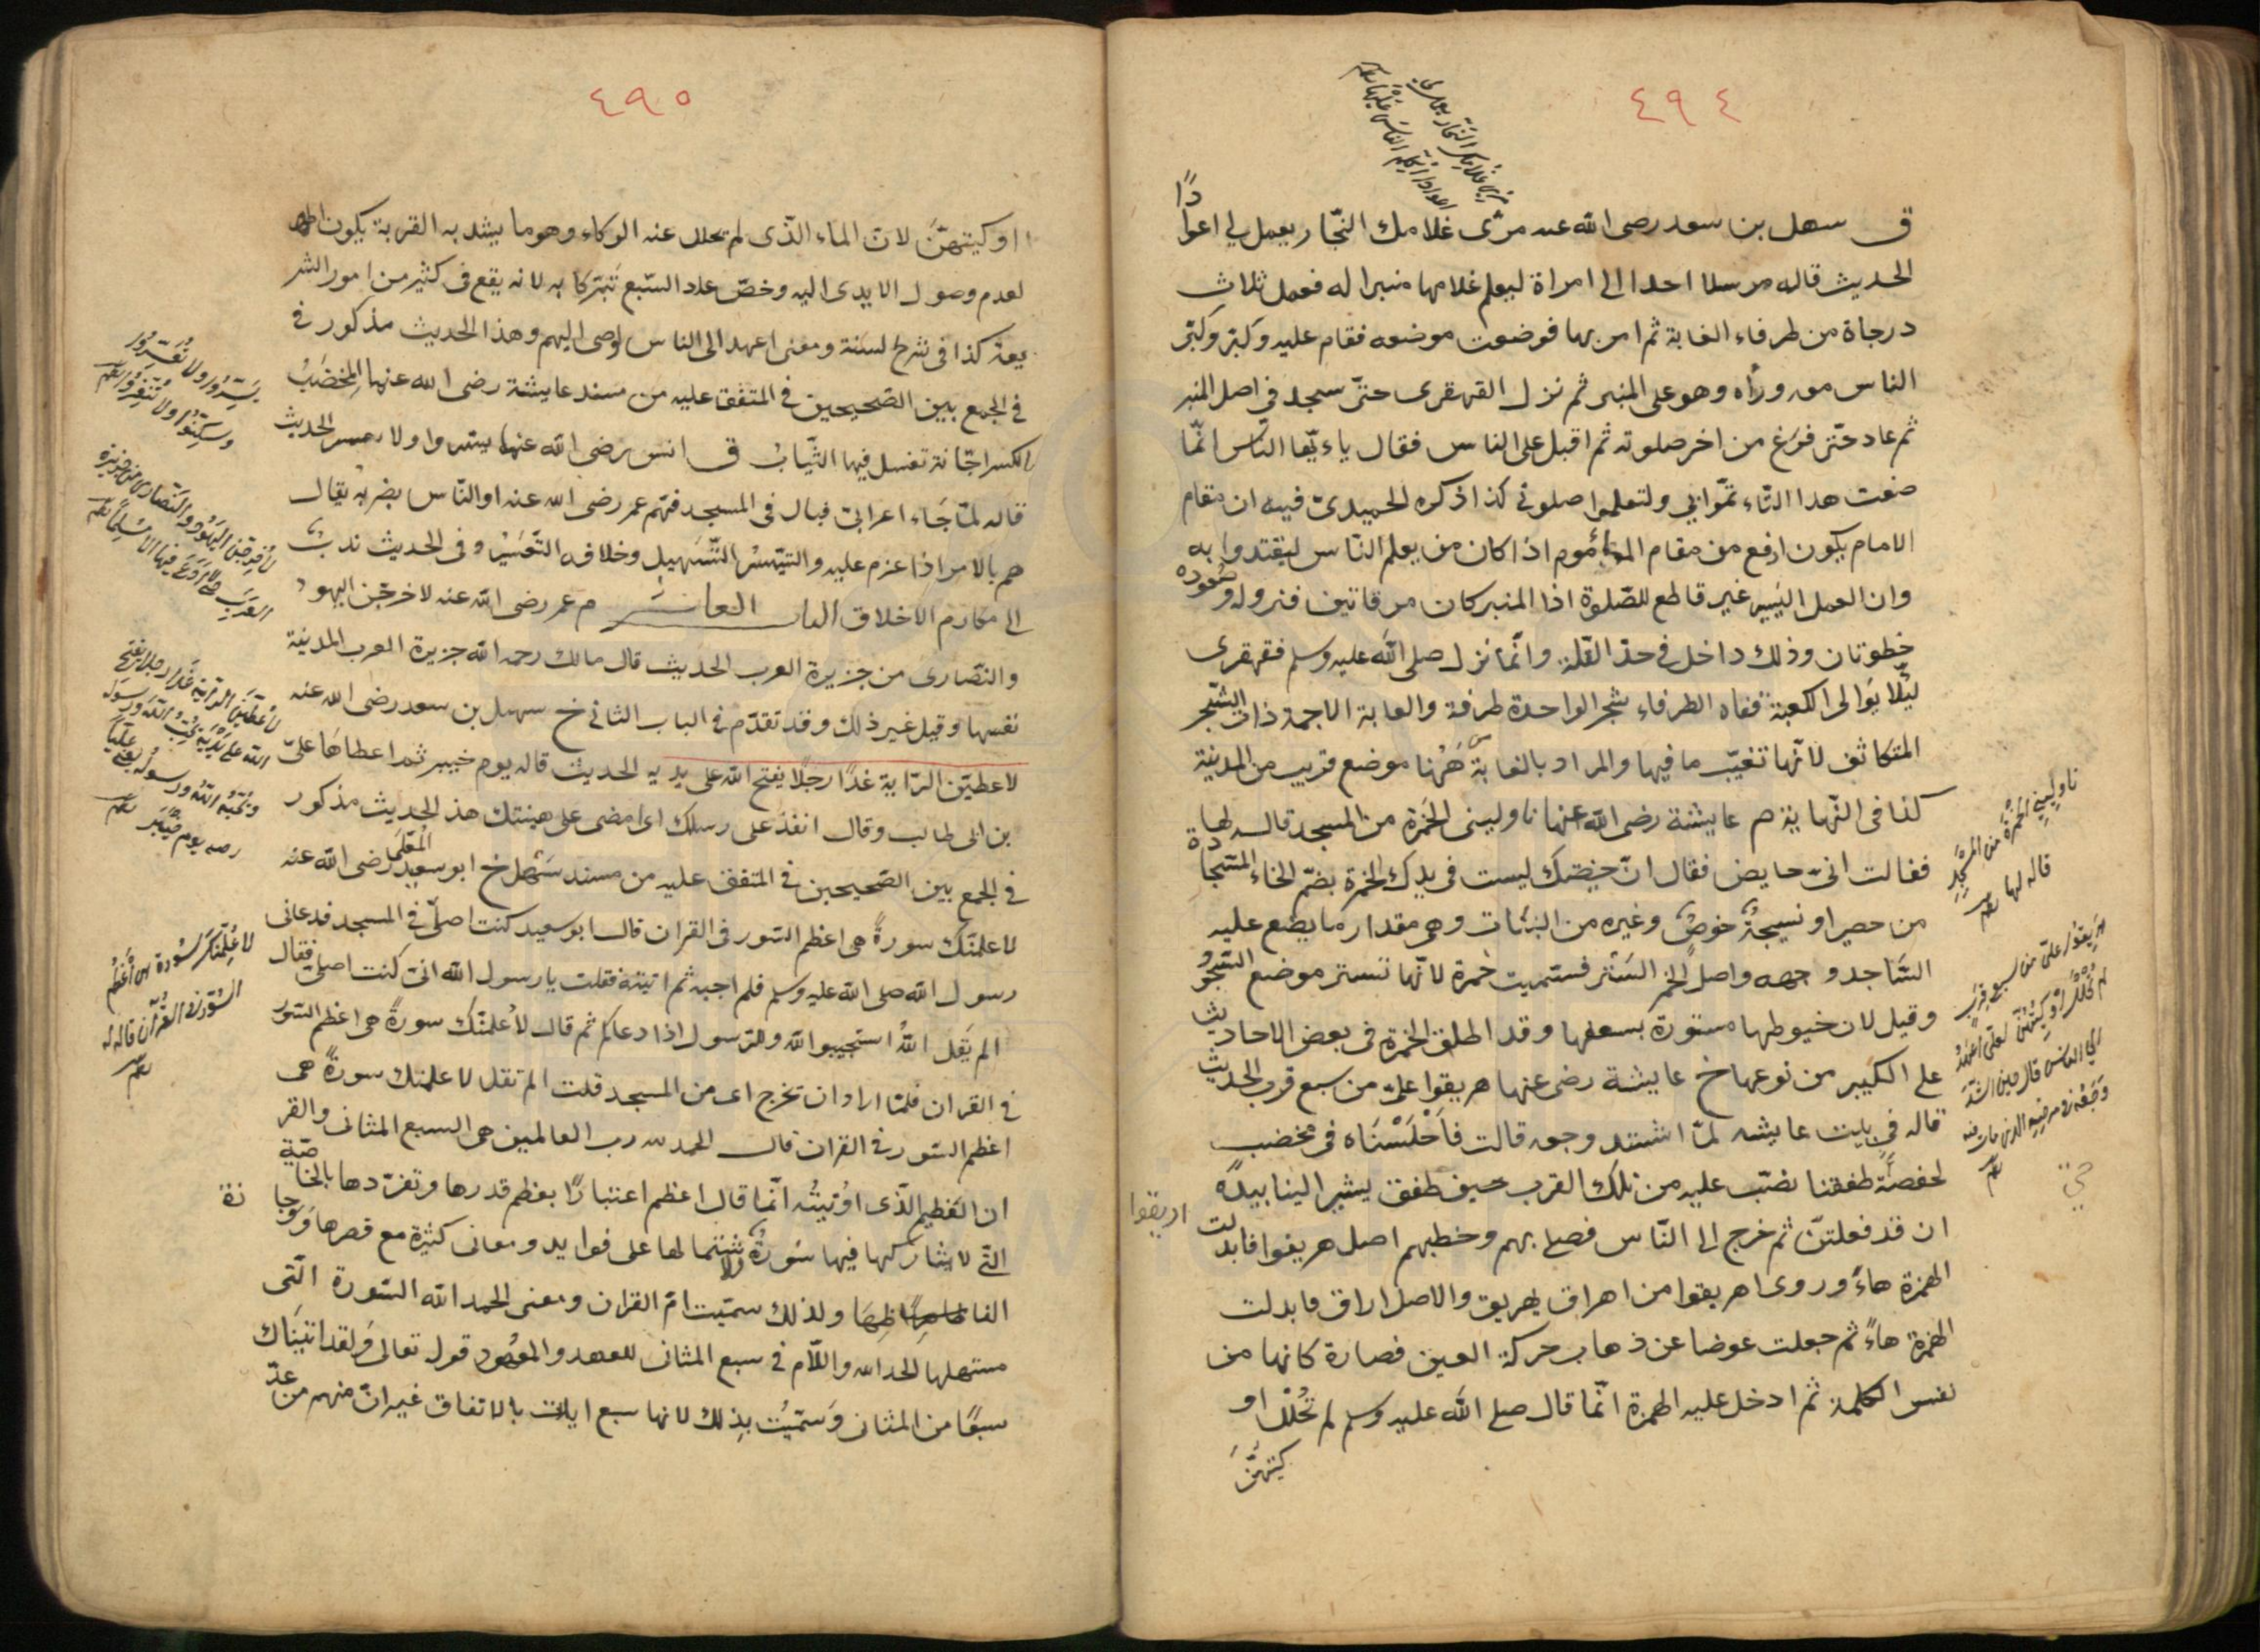 ٤٩٤
مري غلامك النجار يعمل لي
اعوادا اكلم الناس عليها
ق سهل بن سعد رضى الله عنه مرّى غلامك النّجار يعمل لي اعوادًا
الحديث قاله مرسلا احدا الى امراة ليعلم غلامها منبرا له فعمل ثلاث
درجاة من طرفاء الغابة ثم امر بها فوضعت موضعه فقام عليه وكبّر وكبّر
الناس من ورأه وهو على المنبر ثم نزل القهقرى حتّى سجد فى اصل المنبر
ثم عاد حتّى فرغ من اخر صلوته ثم اقبل على الناس فقال ياءيّها النّاس انّما
صنعت هذا لتاءتمّوا بي ولتعلموا صلوتى كذا ذكره الحميدىّ فيه ان مقام
الامام يكون ارفع من مقام الماءموم اذا كان من يعلم الناس ليقتدوا به
وان العمل اليَسِير غير قاطع للصّلوة اذا المنبر كان مرقاتين فنزوله وصعوده
خطوتان وذلك داخل فى حدّ القلّة وانّما نزل صلى الله عليه وسلم فقهقرى
ليّلا يوالى الكعبة قفاه الطرفاء شجر الواحدة طرفة والغابة الاجمة ذات الشّجر
المتكاثف لانّها تغيّب ما فيها والمراد بالغابة هٰهُنا موضع قريب من المدينة
كذا فى النّهاية م عايشة رضى الله عنها ناولينى الخمرة من المسجد قاله لها
فقالت انىّ حايض فقال انّ حيضتك ليست فى يدك الخمرة بضمّ الخاء السّجادة
من حصير او نسيجةُ خوصٍ وغيره من النبات وهى مقدار ما يضع عليه
السّاجد وجهه واصل الخمر السَّتْر فسمّيت خمرة لانّها تستر موضع السّجُود
وقيل لان خيوطها مستورة بسعفها وقد اطلق الخمرة فى بعض الاحاديث
على الكبير من نوعها خ عايشة رضى عنها هريقوا علىّ من سبع قرب الحديث
قاله في بيت عايشه لمّا اشتد وجعه قالت فاَجْلَسْنَاه فى مخضب
لحفصة طفقنا نصّب عليه من تلك القرب حين طفق يشير الينا بيده
ان قد فعلتنّ ثم خرج الى النّاس فصلى بهم وخطبهم اصل هريقوا فابدلت
اريقوا
الهمزة هاءً وروى اهريقوا من اهراق يهريق والاصل اراق فابدلت
الهمزة هاءً ثم جعلت عوضا عن ذهاب حركة العين فصارة كانها من
نفس الكلمة ثم ادخل عليه الهمزة انّما قال صلى الله عليه وسلم لم تُحْلَل او
كيتهنّ
ناوليني الخمرة من المسجد
قاله لها
هريقوا علىّ من سبع قرب
لم تحلل اوكيتهنّ لعلى اعهد
الى الناس قاله حين اشتدّ
وجعه فى مرضه الذى مات فيه
٤٩٥
اوكيتهنّ لان الماء الّذى لم تحلل عنه الوكاء وهو ما يشد به القربة يكون اطهر
لعدم وصول الايدى اليه وخصّ عدد السّبع تبرّكا به لانه يقع فى كثير من امور الشر
يعة كذا فى شرح السنة ومعنى اعهد الى الناس اوصى اليهم وهذا الحديث مذكور فى
فى الجمع بين الصّحيحين فى المتفق عليه من مسند عايشة رضى الله عنها المِخضَبُ
بالكسر اجّانة تغسل فيها الثّياب ق انس رضى الله عنها يسروا ولا تعسروا الحديث
قاله لمّا جَاء اعرابىّ فبال فى المسجد فهّم عمر رضى الله عنه او النّاس بضربه يقال
هم بالامر اذا عزم عليه والتيّسيُر التّسهيل وخلافه التّعسير وفى الحديث ندبٌ
الى مكارم الاخلاق الباب العاشر م عمر رضى الله عنه لاخرجّن اليهود
والنصّارى من جزيرة العرب الحديث قال مالك رحمه الله جزيرة العرب المدينة
نفسها وقيل غير ذلك وقد تقدّم فى الباب الثانى خ سهل بن سعد رضى الله عنه
لاعطيّن الرّاية غدًا رجلًا يفتح الله على يديه الحديث قاله يوم خيبر ثم اعطاهَا علىّ
بن ابى طالب وقال انفذ على رسلك اى امضى على هينتك هذ الحديث مذكور
فى الجمع بين الصّحيحين فى المتفق عليه من مسند سَهْل خ ابو سعيد المُعلّى رضى الله عنه
لاعلمنّك سورةً هى اعظم السّور فى القران قال ابو سعيد كنت اصلّى فى المسجد فدعانى
رسول الله صلى الله عليه وسلم فلم اجبه ثم اتيته فقلت يا رسول الله انىّ كنت اصلى فقال
الم يَقل اللهُ استجيبوا لله وللرّسول اذا دعاكم ثم قال لأعلمنّك سورةً هى اعظم السّور
فى القران فلمّا اراد ان تخرج اى من المسجد قلت الم تقل لاعلمنك سورةً هى
اعظم السّور فى القران قال الحمد لله رب العالمين هى السبع المثانى والقر
ان العظيم الّذى اوُتيتُه انّما قال اعظم اعتبارًا بعظم قدرها وتفرّدها بالخاصّية
التّى لا يشاركها فيها سُورةٌ ولاشتمالها على فوايد ومعانى كثيرة مع قصرها ووجا
زة
الفاظهَا ولذلك سمّيت امّ القران ومعنى الحمد الله السّورة التّى
مستهلها الحمد لله واللّام فى سبع المثانى للعهد والمعهود قوله تعالى ولقد اتيناك
سبعًا من المثانى وَسمّيُت بذِلك لانها سبع ايات بالاتفاق غير انّ منهم من عدّ
يسّرُوا ولا تُعسّرُوا
وسكّنُوا ولا تُنفّرُوا
لأُخرجنّ اليهُود والنّصارى من جزيرة
العرب حتّى لا ادع فيها الا مُسلِمًا
لأُعطيَنّ الرّاية غدًا رجلا يفتح
الله على يديه يُحبّ الله ورسوله
ويُحبّه اللهُ ورسوله يعنى عليّا
يوم خيبَر
لأُعلّمنّك سُورة هى أعظمُ
السُّوَر فى القُرآن قاله له